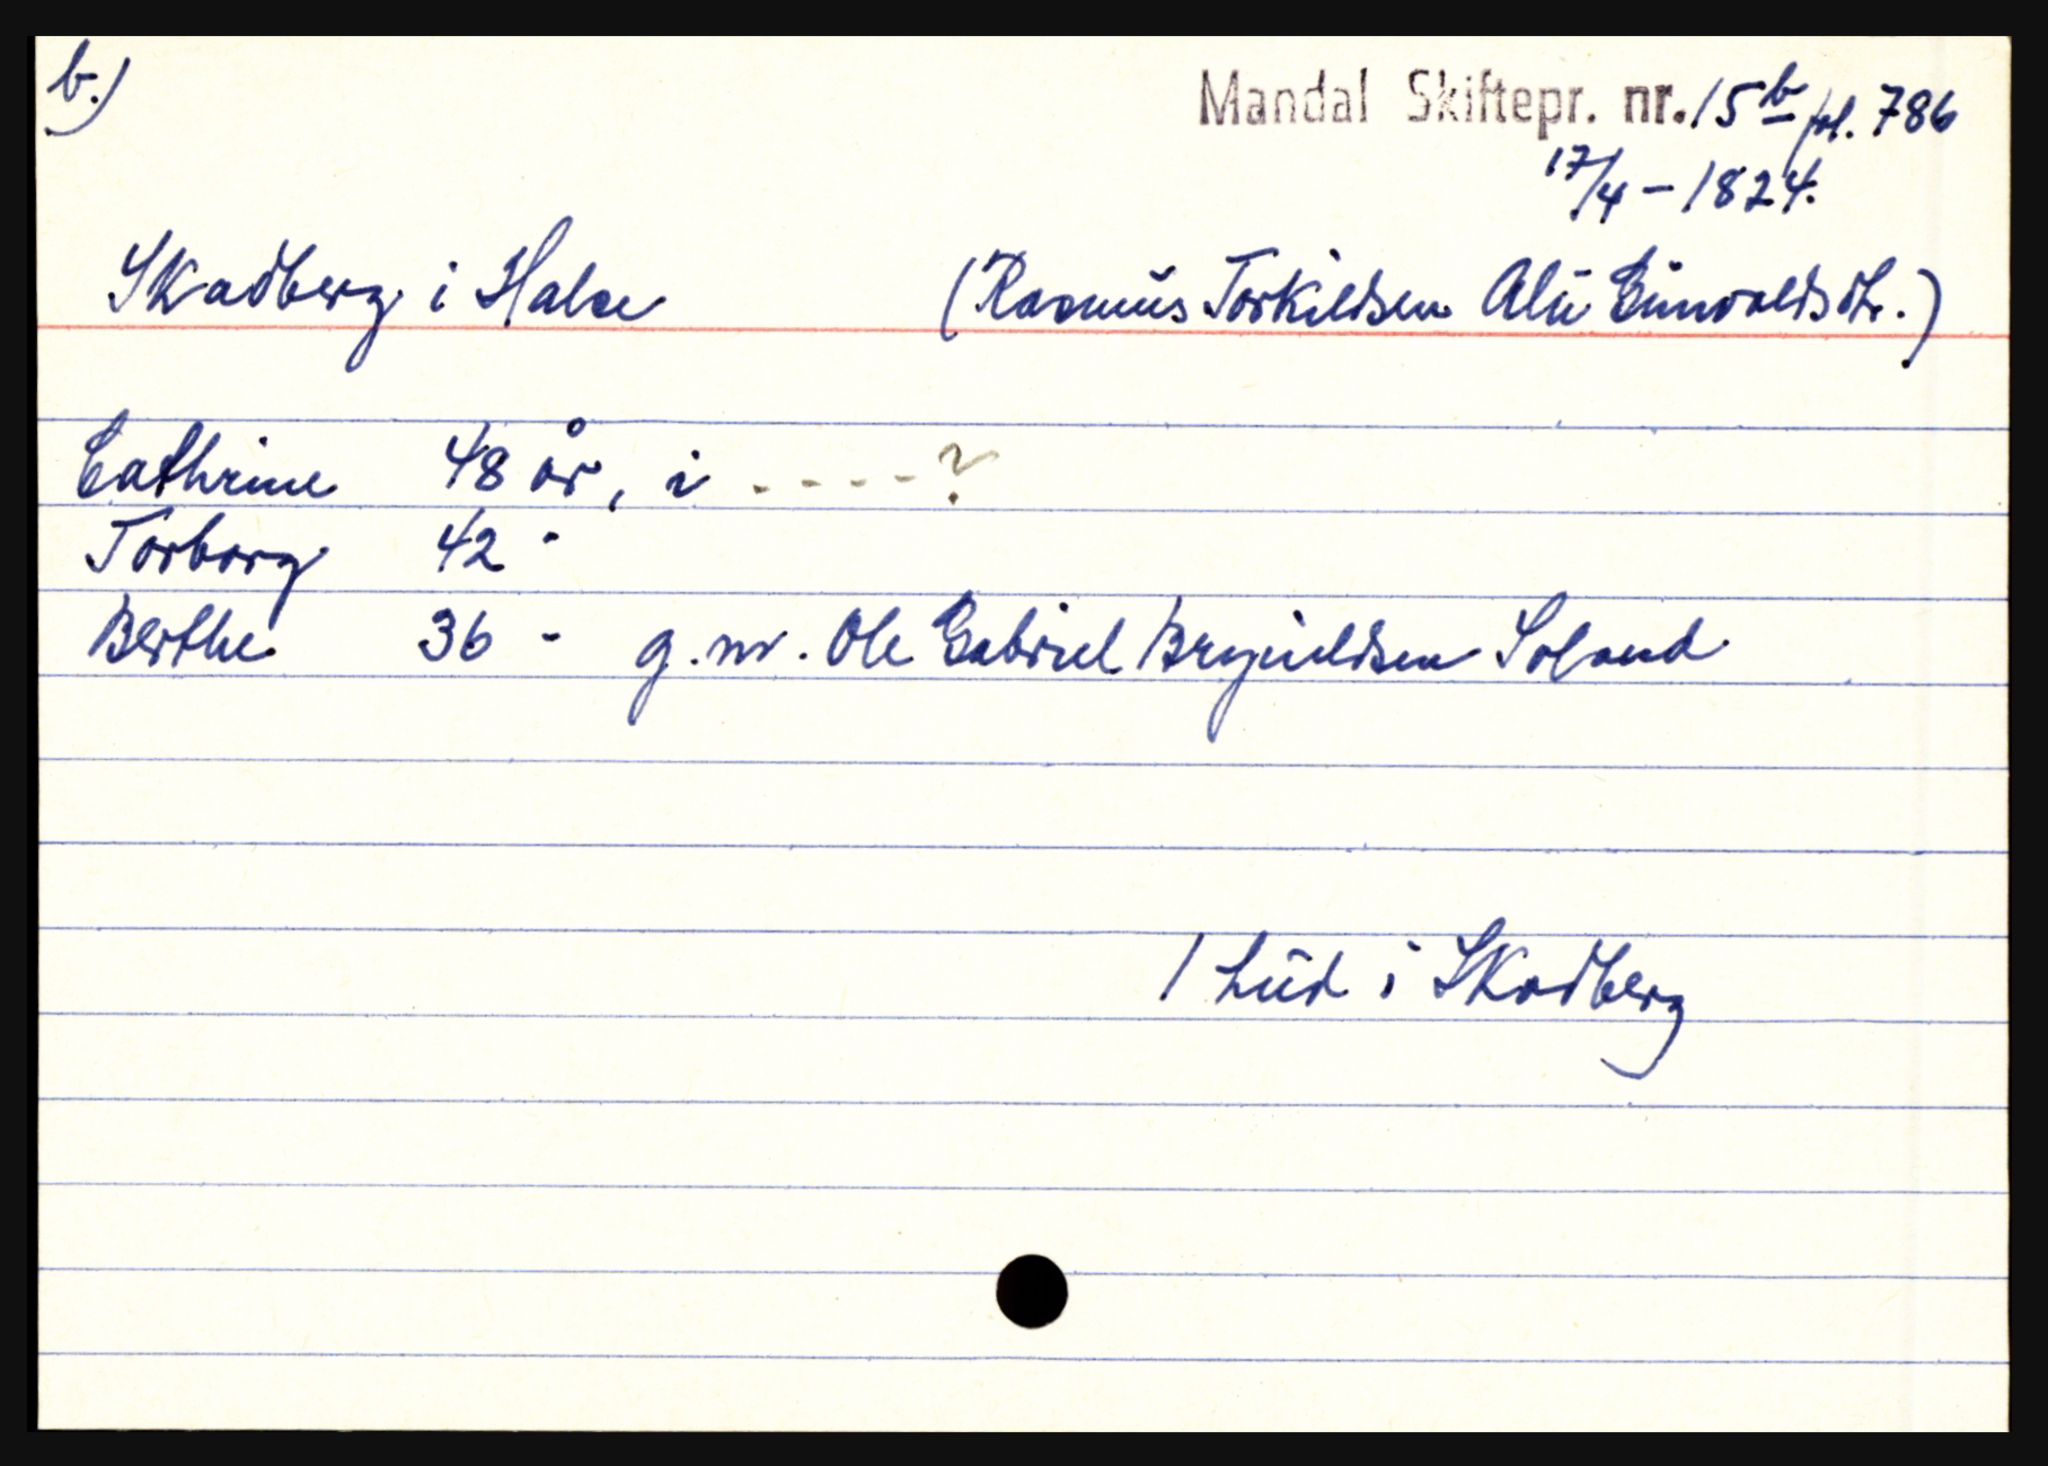 b.)
Mandal Skiftepr. nr. 15b fol. 786
17/4 - 1824.
Skadberg i Halse (Rasmus Torkildsen Alu Gunvaldsdtr.)
Cathrine 48 år, i - - - - ?
Torborg 42 -
Berthe 36 - g.m. Ole Gabriel Brynildsen Soland
1 hud i Skadberg